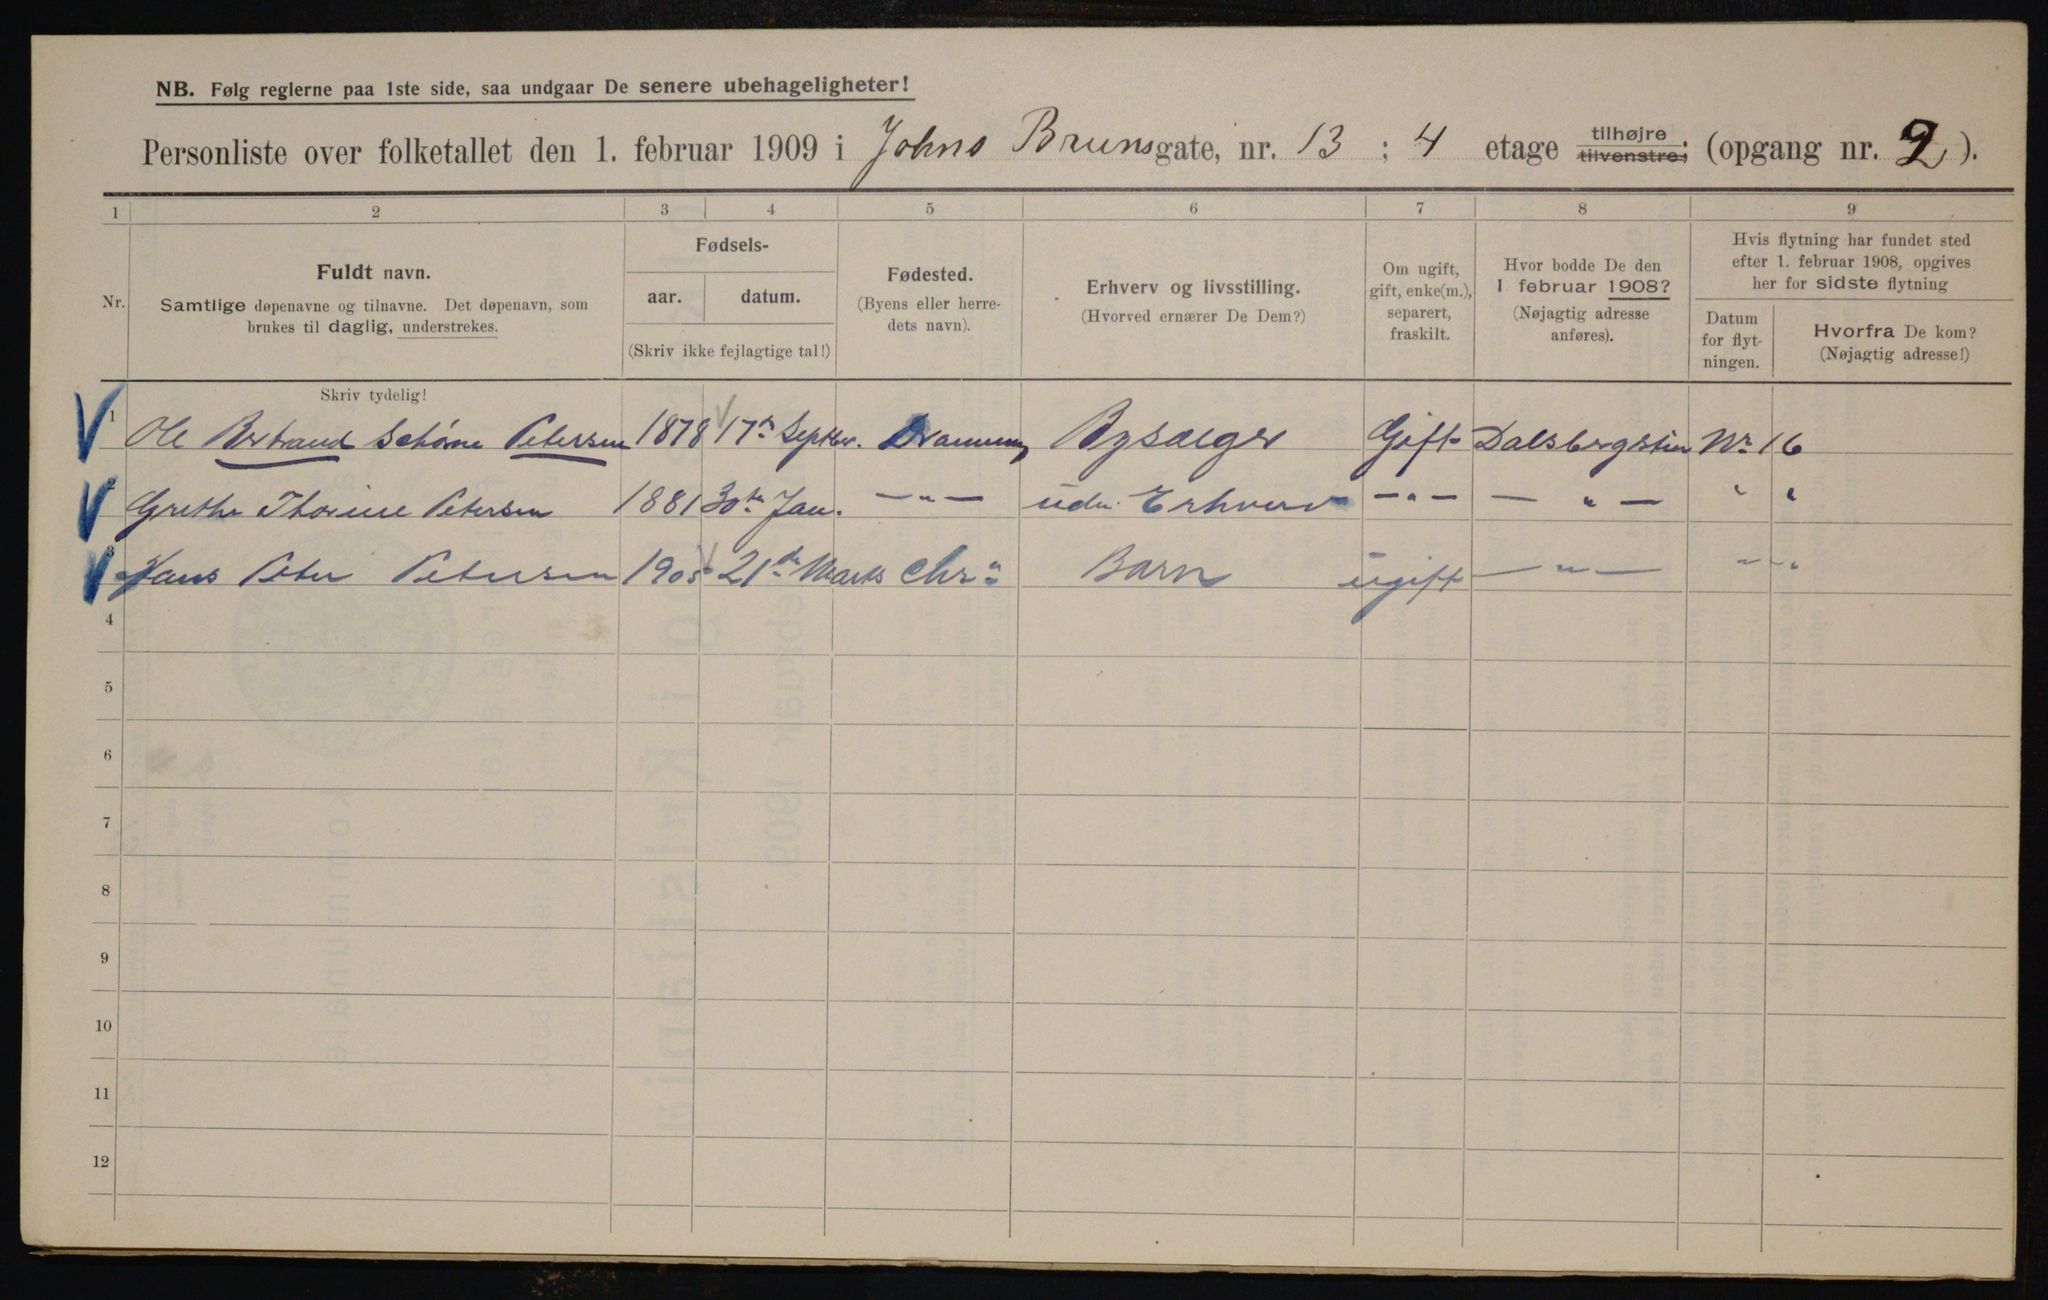 NB. Følg reglerne paa 1ste side, saa undgaar De senere ubehageligheter!
Personliste over folketallet den 1. februar 1909 i Johns Brunsgate, nr. 13 ; 4 etage tilhøjre tilvenstre; (opgang nr. 2).
1 2 3 4 5 6 7 8 9
Nr.
Fuldt navn.
Samtlige døpenavne og tilnavne. Det døpenavn, som
brukes til daglig, understrekes.
Fødsels-
aar. datum.
(Skriv ikke fejlagtige tal!)
Fødested.
(Byens eller herre-
dets navn).
Erhverv og livsstilling.
(Hvorved ernærer De Dem?)
Om ugift,
gift, enke(m.),
separert,
fraskilt.
Hvor bodde De den
1. februar 1908?
(Nøjagtig adresse
anføres).
Hvis flytning har fundet sted
efter 1. februar 1908, opgives
her for sidste flytning
Datum
for flyt-
ningen.
Hvorfra De kom?
(Nøjagtig adresse!)
Skriv tydelig!
1 Ole Bertrand Schøne Petersen 1878 17de Septbr. Drammen Bysælger Gift Dalsbergstien Nr 16
2 Grethe Thorine Petersen 1881 30te Jan. — " — uden Erhverv — " — — " — " "
3 Hans Peter Petersen 1905 21de Marts Chr.a Barn ugift — " — " "
4
5
6
7
8
9
10
11
12